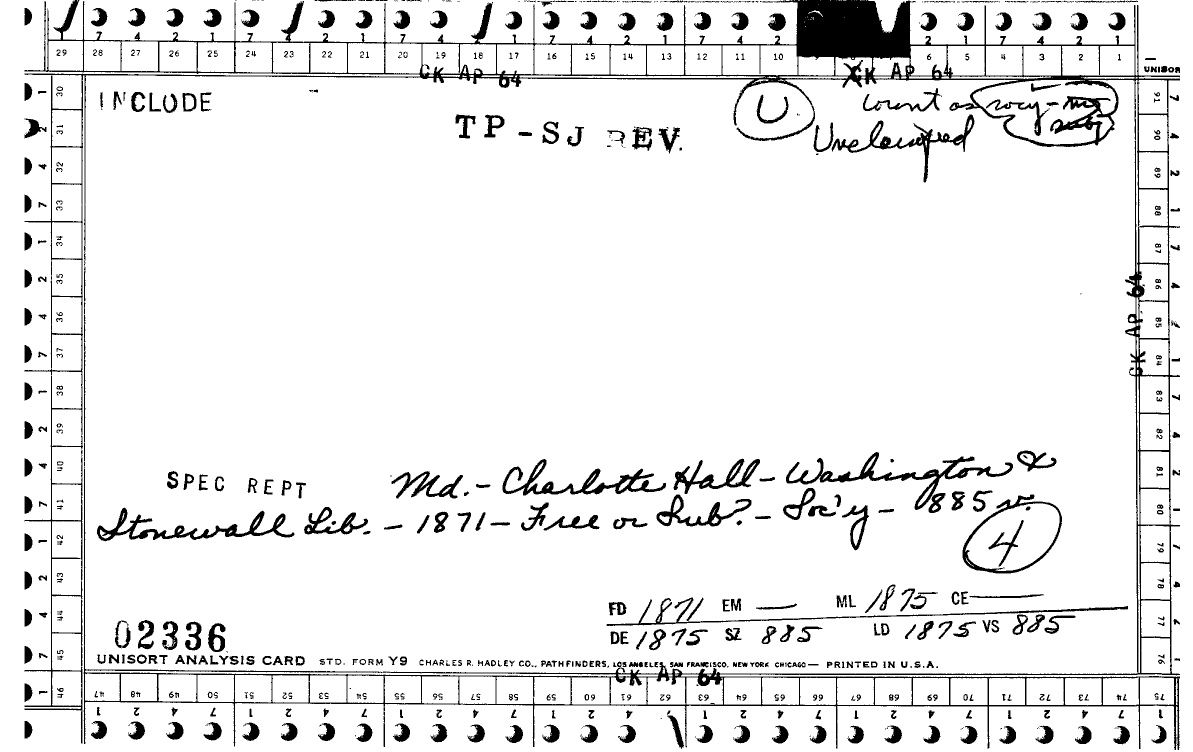 7 4 2 1 7 4 2 1 7 4 2 1 7 4 2 1 7 4 2 1 2 1 7 4 2 1
29 28 27 26 25 24 23 22 21 20 19 18 17 16 15 14 13 12 11 10 9 8 7 6 5 4 3 2 1
CK AP 64
CK AP 64
UNISOR
INCLUDE
TP-SJ REV.
U
Count as socy-
Unclassified
CK AP 64
SPEC REPT
Md.- Charlotte Hall - Washington &
Stonewall Lib. - 1871 - Free or Sub? - Soc'y - 885 v.
4
FD 1871 EM — ML 1875 CE —
DE 1875 SZ 885 LD 1875 VS 885
02336
UNISORT ANALYSIS CARD STD. FORM Y9 CHARLES R. HADLEY CO., PATHFINDERS, LOS ANGELES, SAN FRANCISCO, NEW YORK CHICAGO — PRINTED IN U.S.A.
CK AP 64
30 31 32 33 34 35 36 37 38 39 40 41 42 43 44 45 46
47 48 49 50 51 52 53 54 55 56 57 58 59 60 61 62 63 64 65 66 67 68 69 70 71 72 73 74 75
76 77 78 79 80 81 82 83 84 85 86 87 88 89 90 91